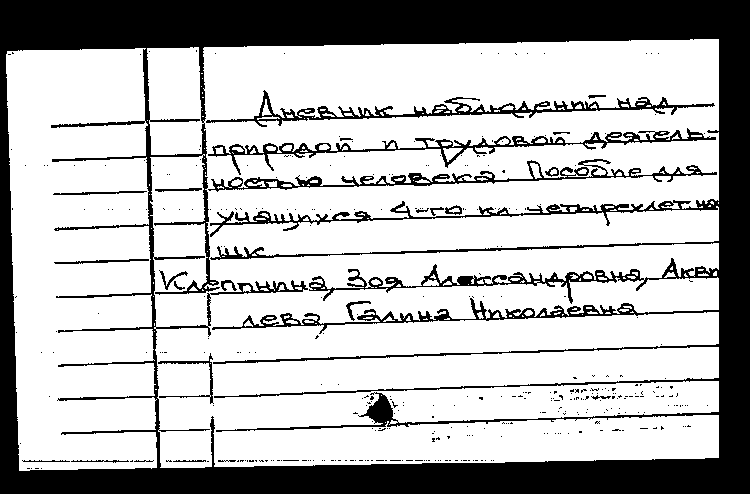 Дневник наблюдений над
природой и трудовой деятель-
ностью человека: Пособие для
учащихся 4-го кл четырехлет. на
шк.
Клепинина, Зоя Александровна, Акви
лева, Галина Николаевна